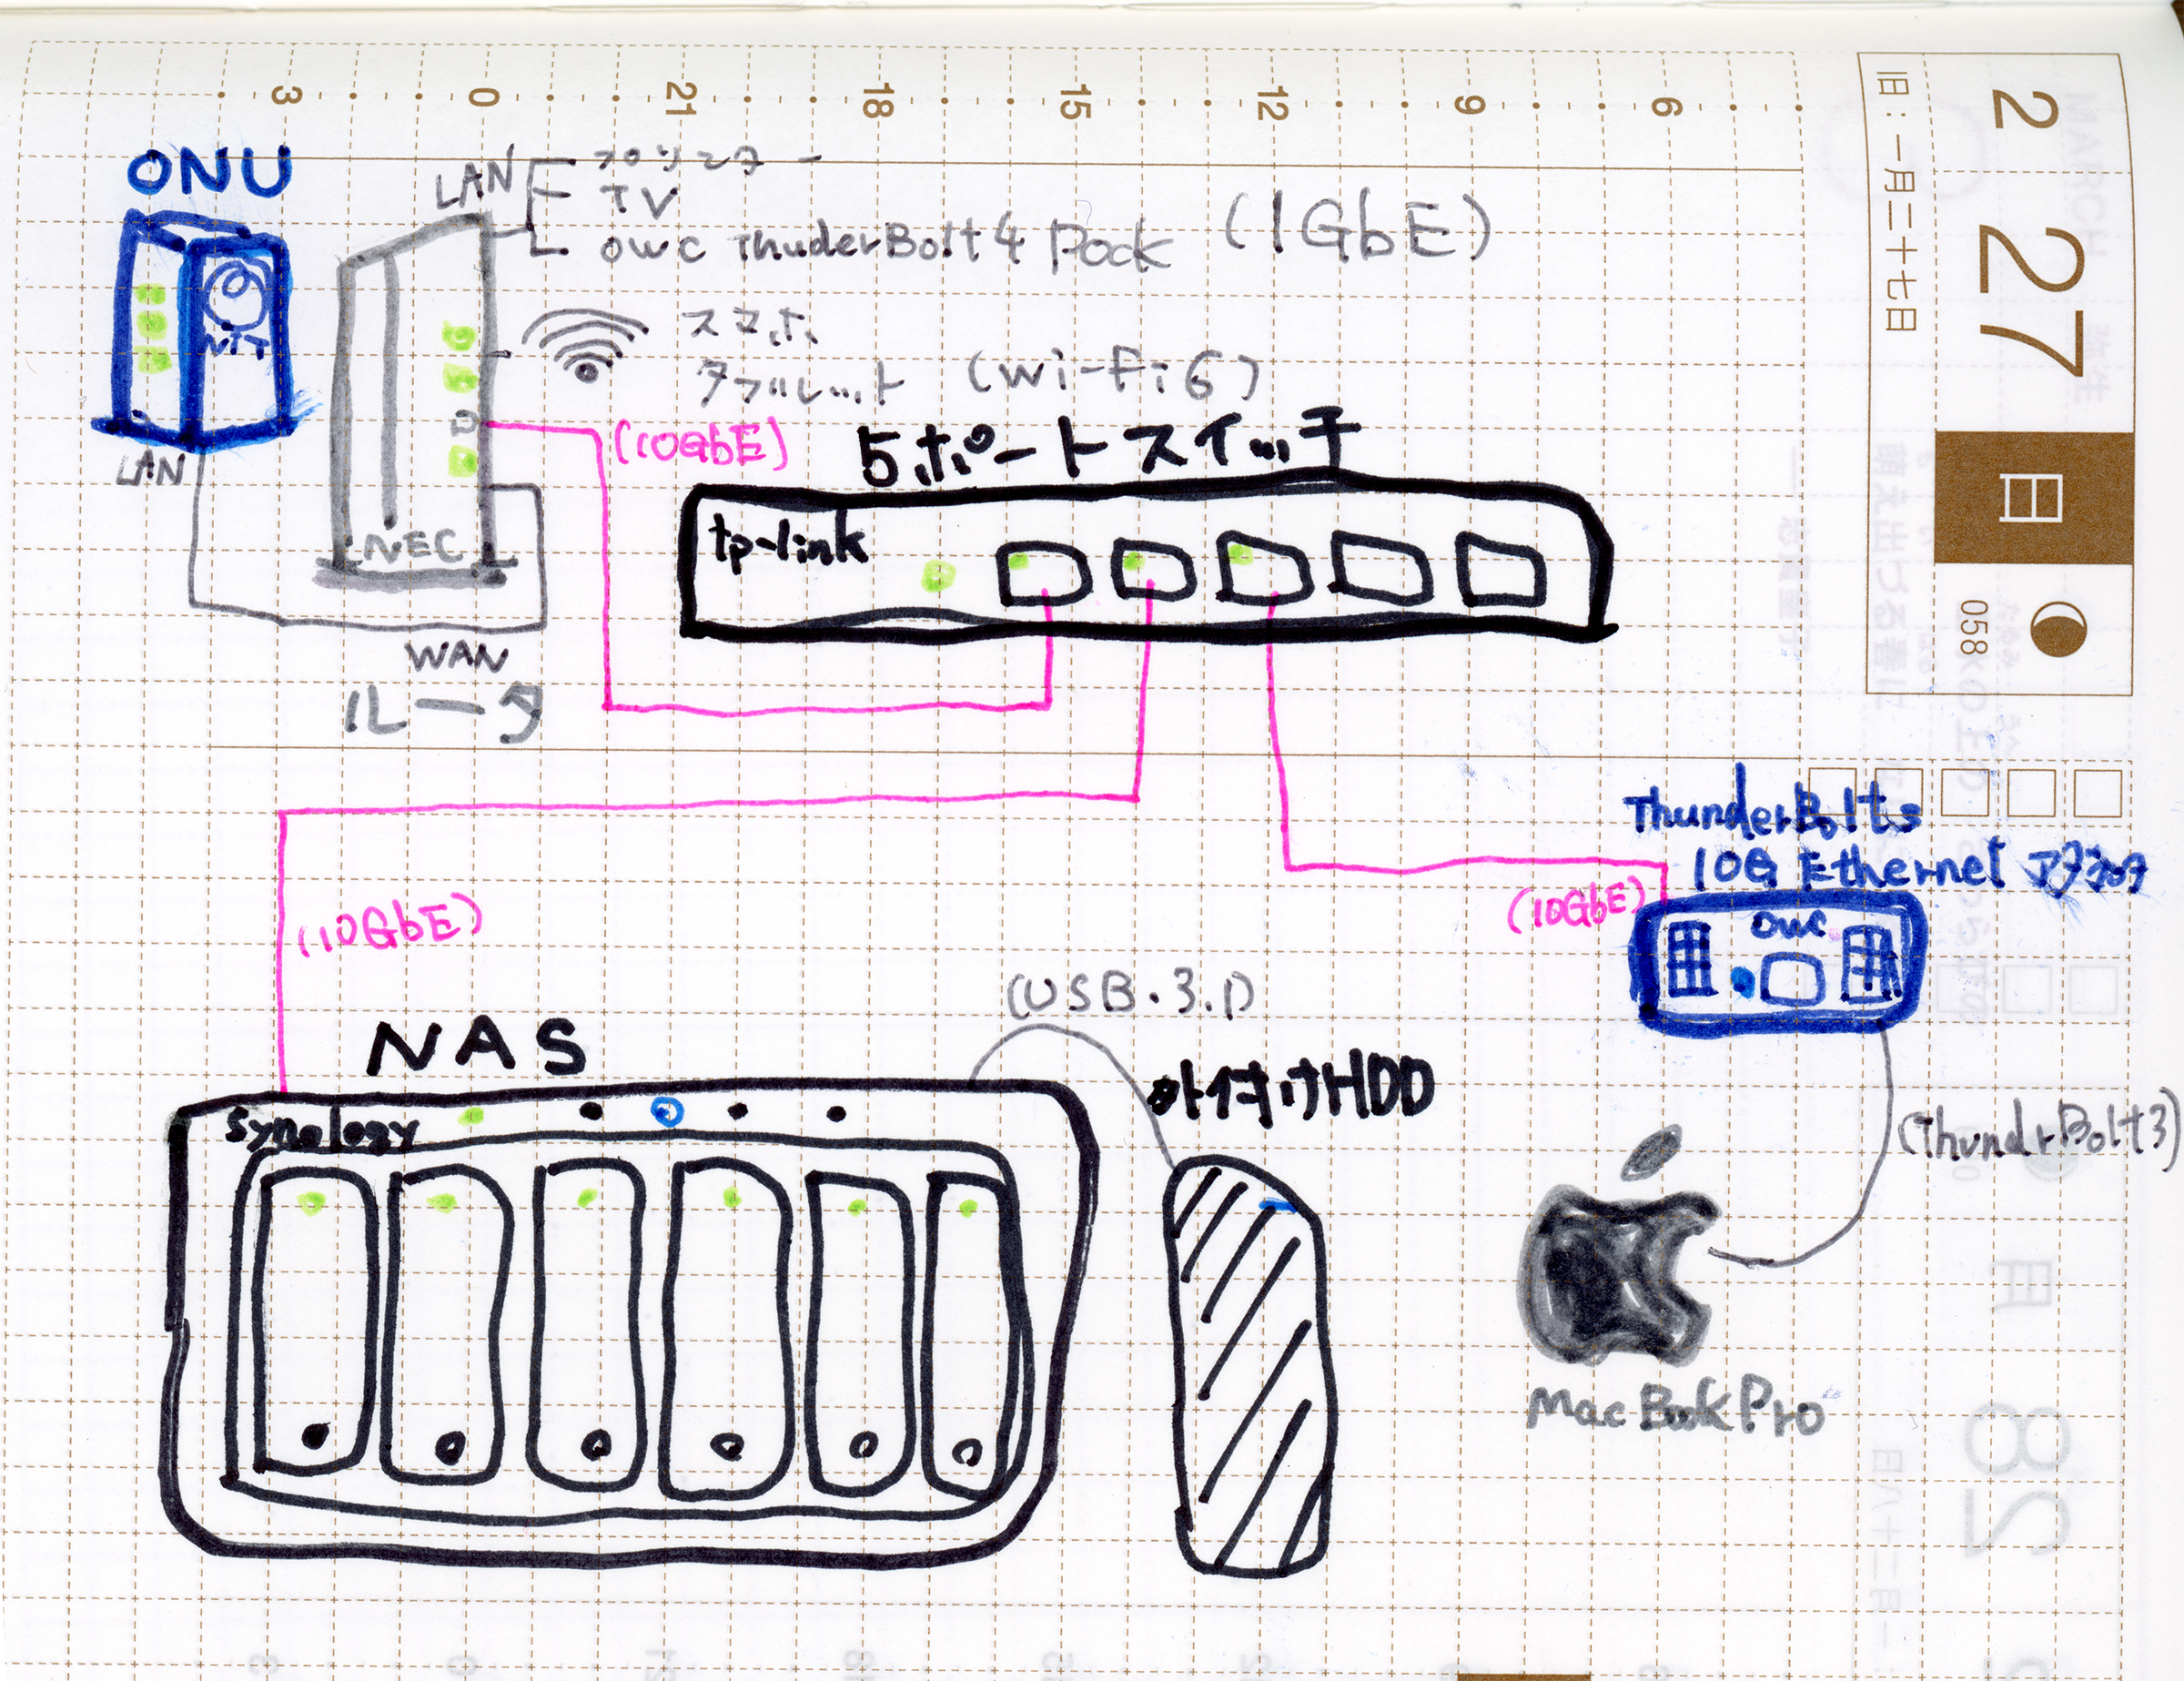 3 0 21 18 15 12 9 6
2 27 日
旧:一月二十七日
058
ONU
NTT
LAN
LAN
プリンター
TV
OWC ThuderBolt4 Dock (1GbE)
スマホ
タブレット (Wi-Fi6)
NEC
WAN
ルータ
(10GbE)
5ポートスイッチ
tp-link
ThunderBolt3
10G Ethernet アダプタ
(10GbE)
OWC
(10GbE)
NAS
Synology
(USB.3.1)
外付けHDD
(ThundrBolt3)
MacBookPro